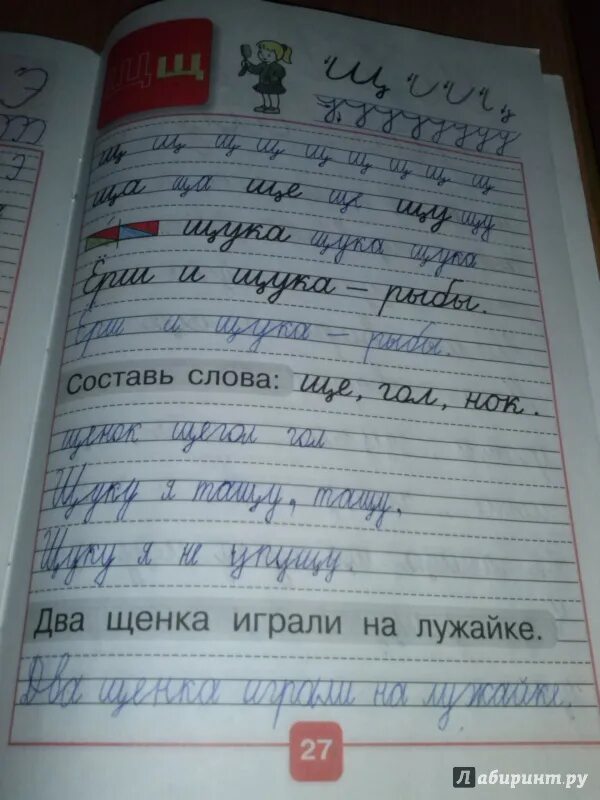 Щщ Щ
щ щ щ щ щ щ щ щ щ
ща ща ще ще щу щу
щука щука щука
Ёрш и щука – рыбы.
Ёрш и щука – рыбы.
Составь слова: ще, гол, нок.
щенок щегол гол
Щуку я тащу, тащу,
Щуку я не упущу.
Два щенка играли на лужайке.
Два щенка играли на лужайке.
27
Лабиринт.ру